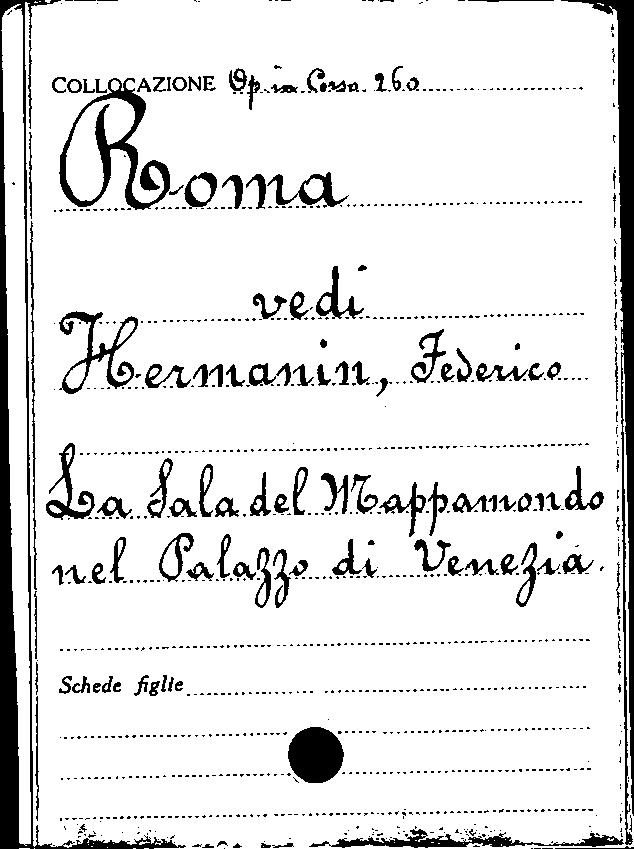 COLLOCAZIONE Op. in Corso 260
Roma
vedi
Hermanin, Federico
La Sala del Mappamondo
nel Palazzo di Venezia.
Schede figlie